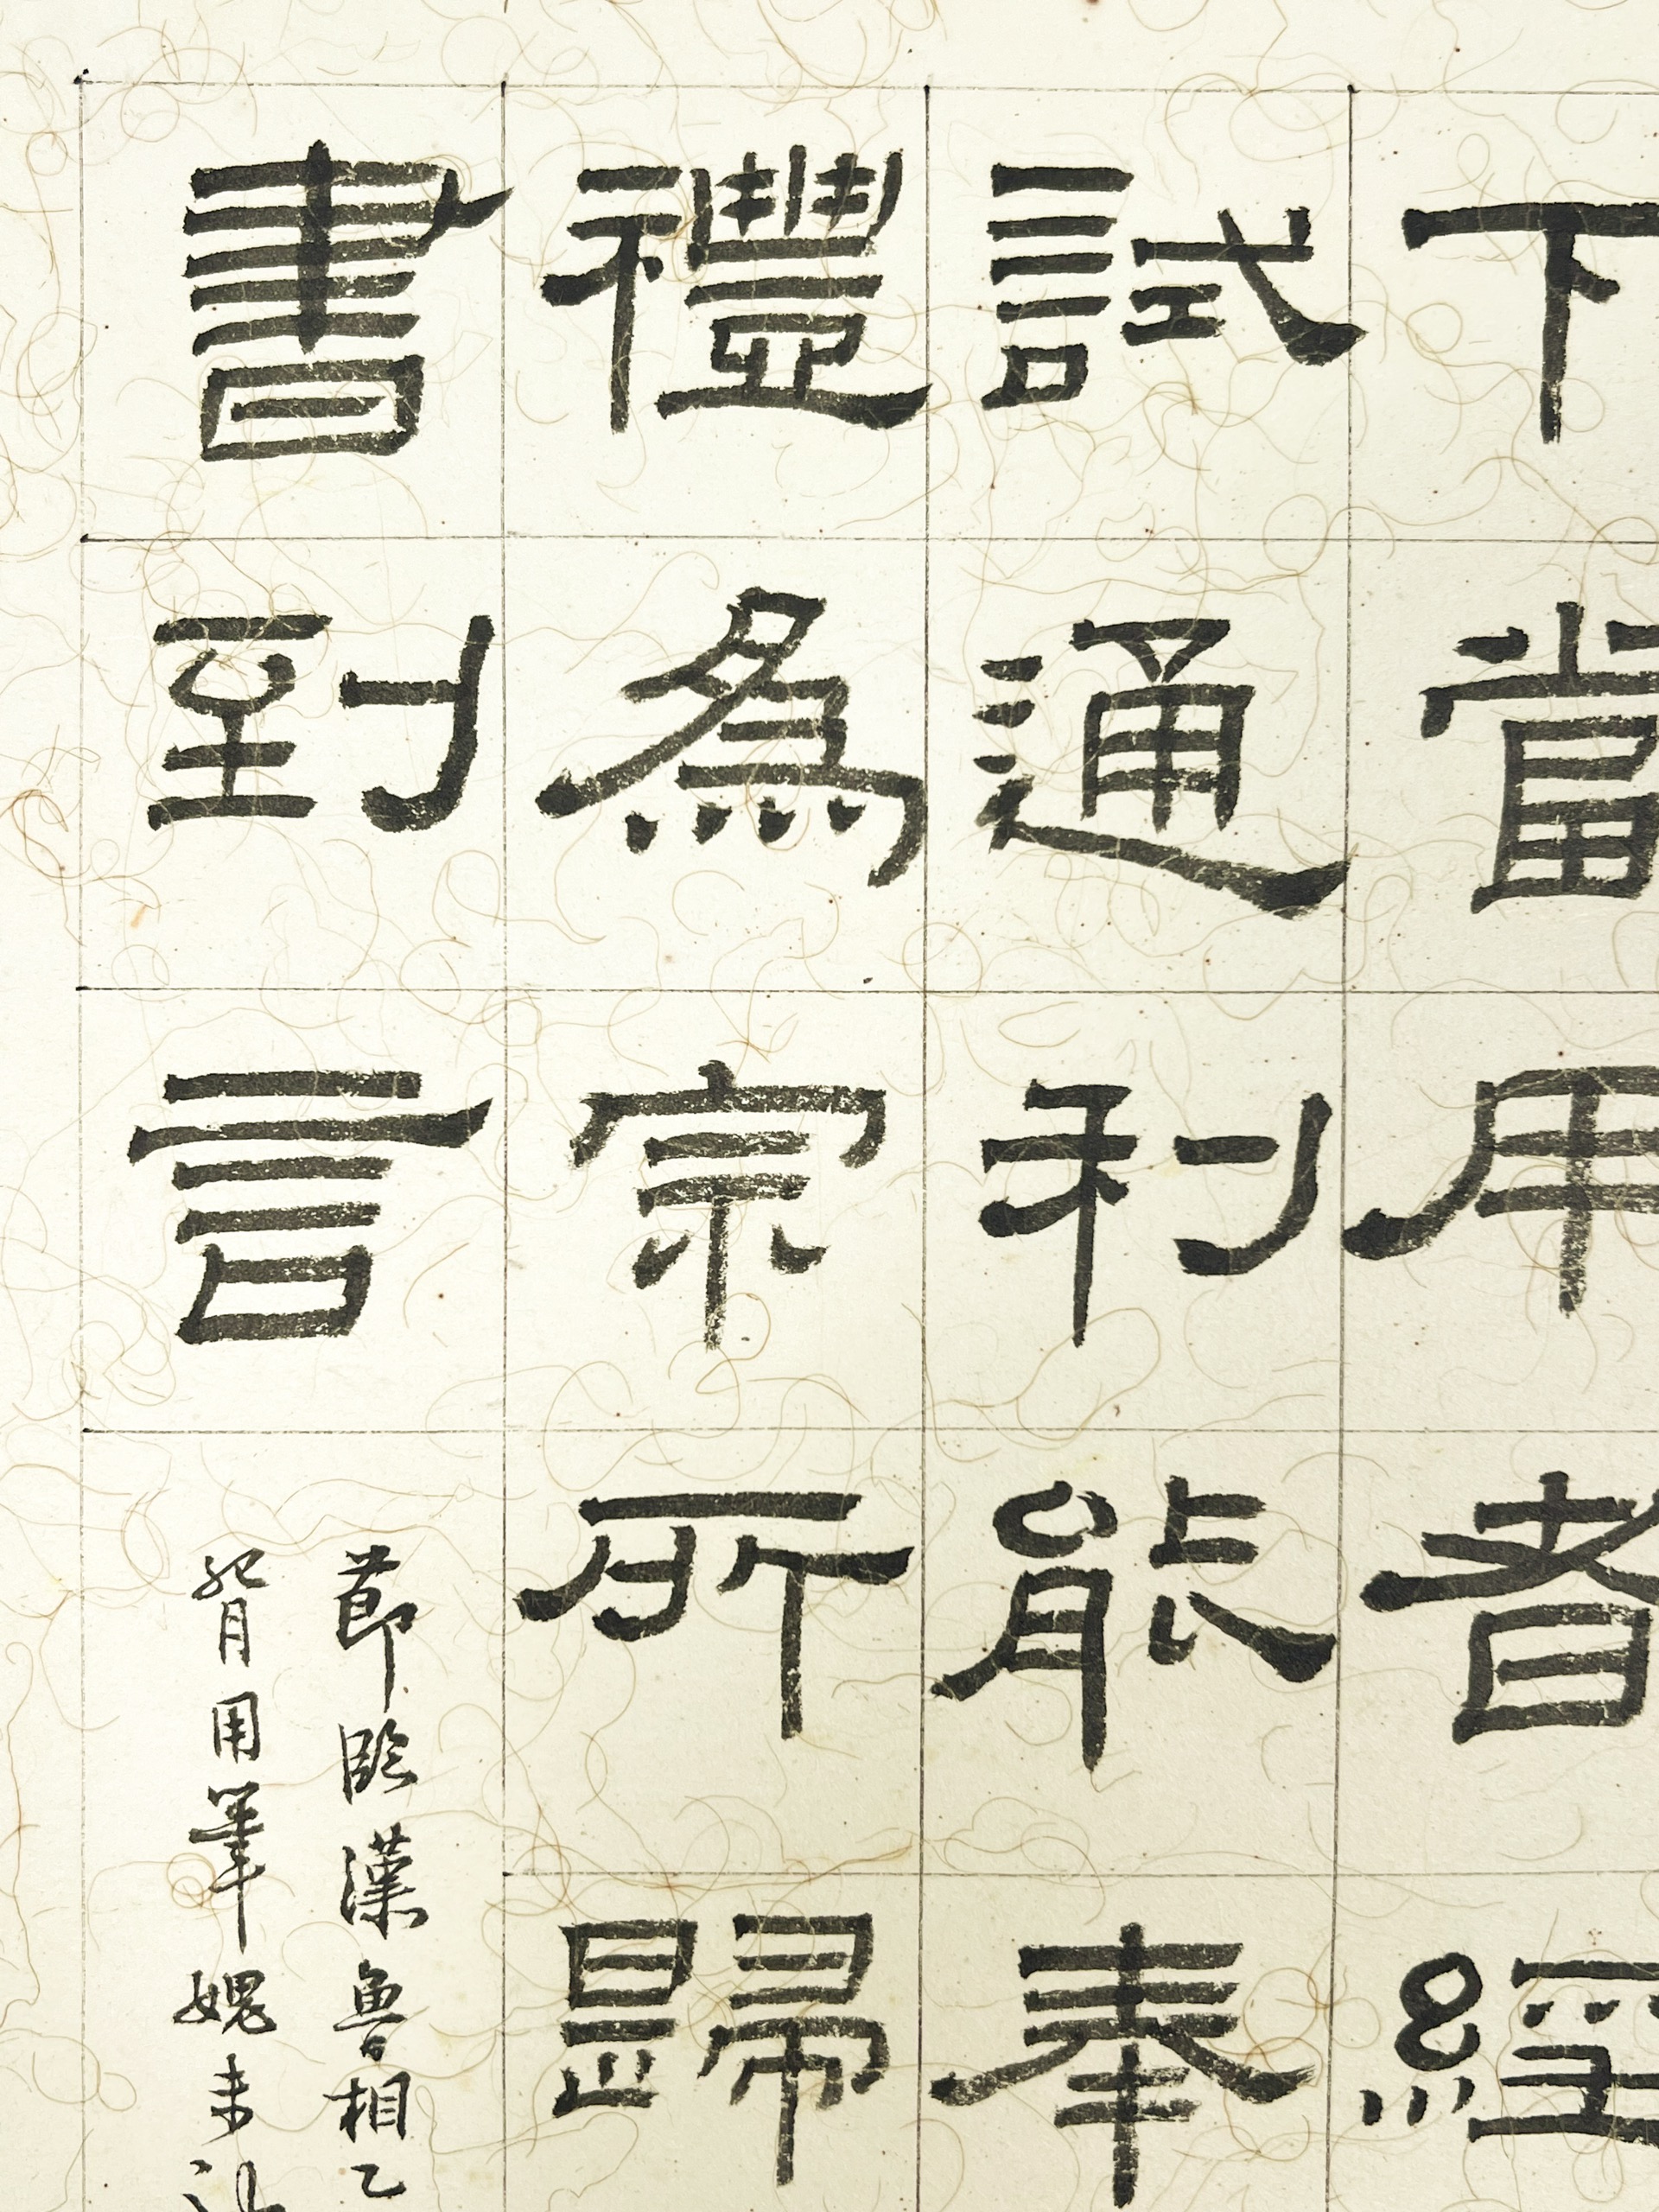 下當用者經
試通利能奉
禮為宗所歸
書到言
節臨漢魯相乙
用筆媿未